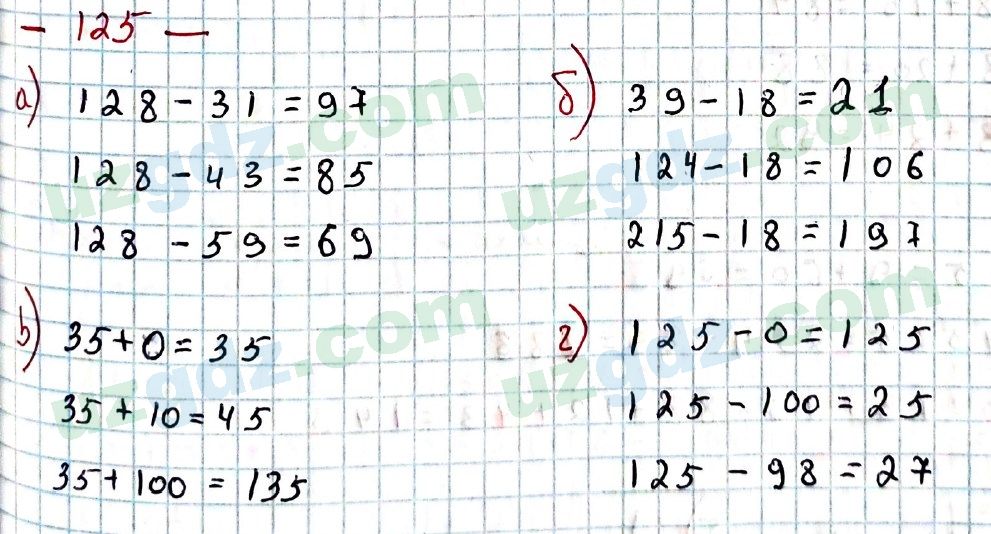 - 125 -
а) 128 - 31 = 97
128 - 43 = 85
128 - 59 = 69
б) 39 - 18 = 21
124 - 18 = 106
215 - 18 = 197
в) 35 + 0 = 35
35 + 10 = 45
35 + 100 = 135
г) 125 - 0 = 125
125 - 100 = 25
125 - 98 = 27
uzgdz.com
uzgdz.com
uzgdz.com
uzgdz.com